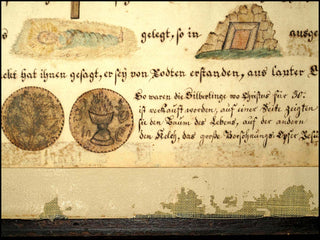 gelegt, so in
hat ihnen gesagt, er sey von Todten erstanden, aus lauter
So waren die Silberlinge wo Christus für 30:
ist verkauft worden, auf einer Seite zeigten
sie den Baum des Lebens, auf der andern
den Kelch, das große Versöhnungs Opfer Jesu